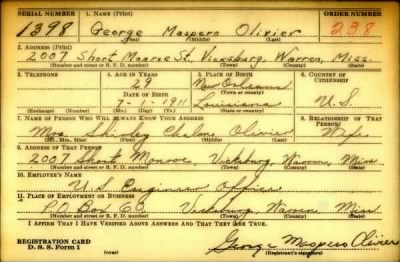 SERIAL NUMBER 1. NAME (Print) ORDER NUMBER
1398 George Maspero Olivier 238
(First) (Middle) (Last)
2. ADDRESS (Print)
2007 Short Monroe St, Vicksburg, Warren, Miss.
(Number and street or R. F. D. number) (Town) (County) (State)
3. TELEPHONE 4. AGE IN YEARS 5. PLACE OF BIRTH 6. COUNTRY OF CITIZENSHIP
29 New Orleans
DATE OF BIRTH (Town or county)
1911 Louisiana U.S.
(Exchange) (Number) (Mo.) (Day) (Yr.) (State or country)
7. NAME OF PERSON WHO WILL ALWAYS KNOW YOUR ADDRESS 8. RELATIONSHIP OF THAT PERSON
Mrs. Shirley Olivier Wife
(Mr., Mrs., Miss) (First) (Middle) (Last)
9. ADDRESS OF THAT PERSON
2007 Short Monroe, Vicksburg, Warren, Miss
(Number and street or R. F. D. number) (Town) (County) (State)
10. EMPLOYER'S NAME
U.S. Engineer Office
11. PLACE OF EMPLOYMENT OR BUSINESS
P.O Box 60 Vicksburg, Warren, Miss
(Number and street or R. F. D. number) (Town) (County) (State)
I AFFIRM THAT I HAVE VERIFIED ABOVE ANSWERS AND THAT THEY ARE TRUE.
REGISTRATION CARD
D. S. S. Form 1 George Maspero Olivier
(Registrant's signature)